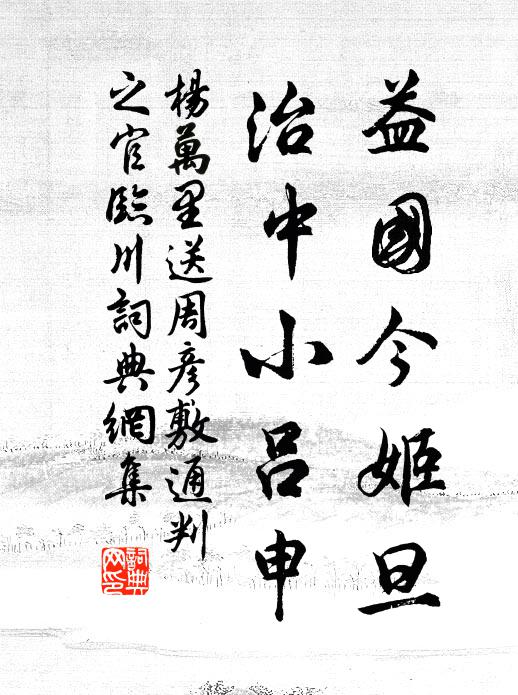 益國今姬旦
治中小呂申
楊萬里送周彥敷通判
之官臨川詞典網集
詞典网印